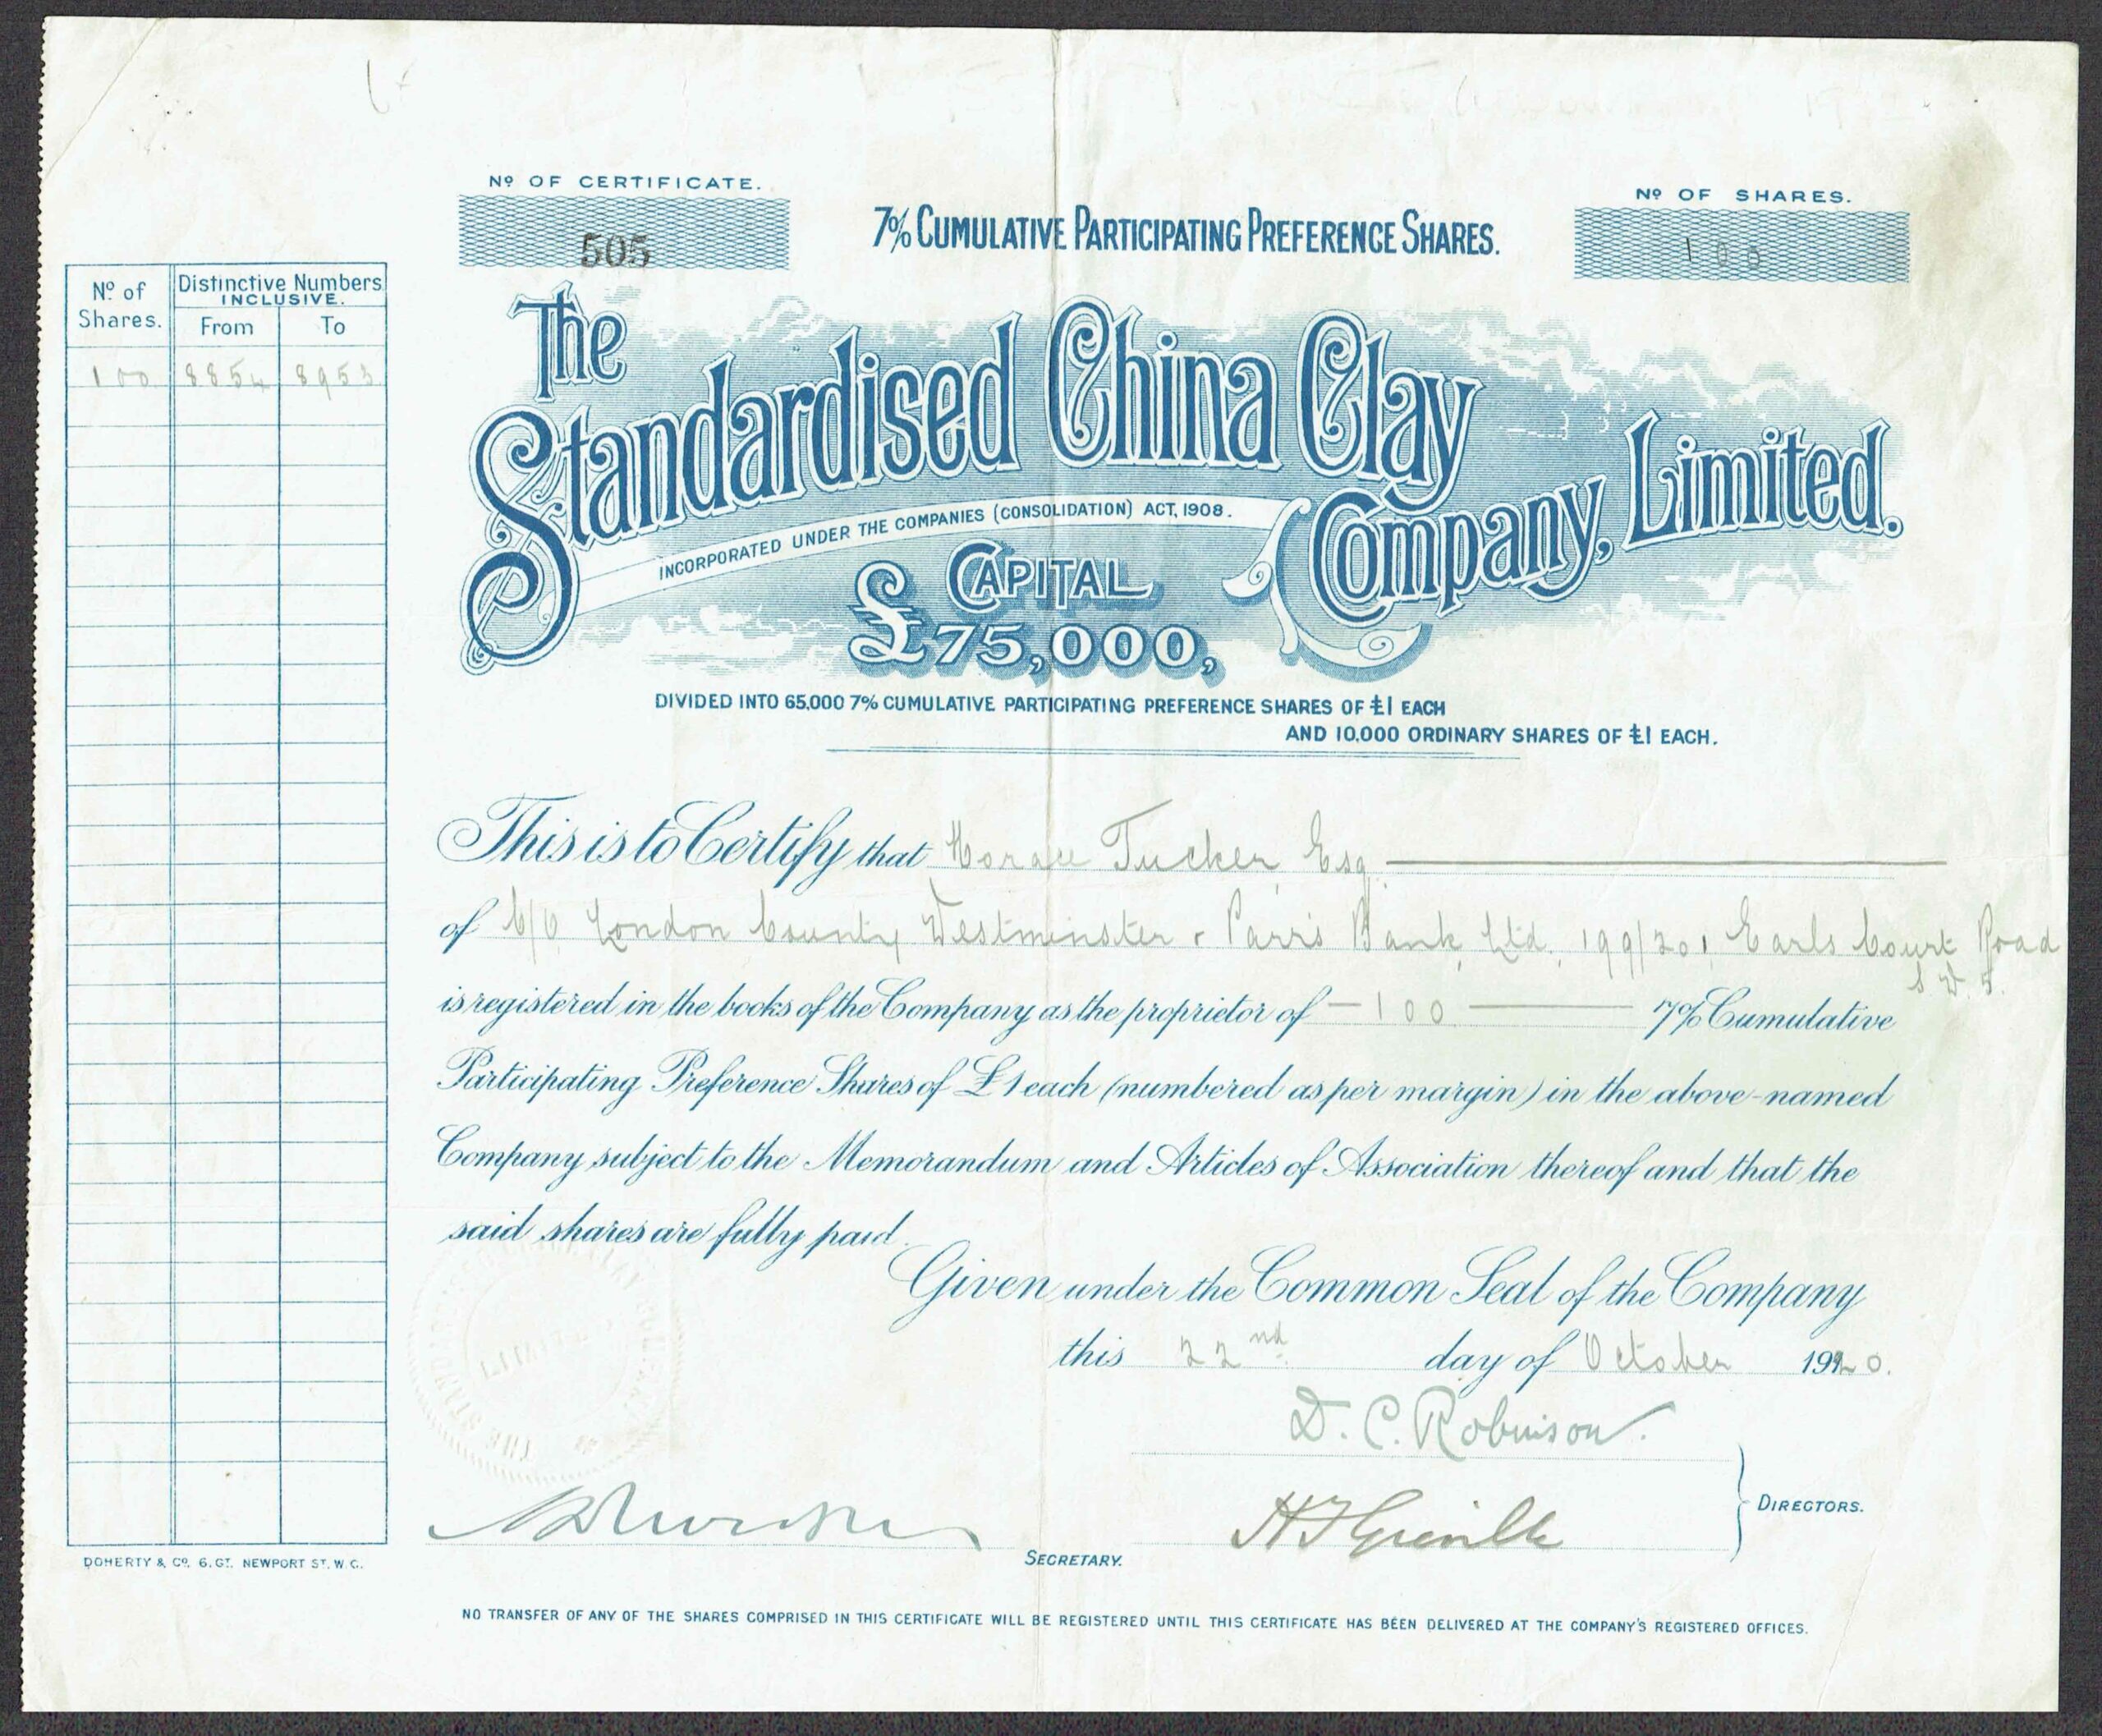 Nº OF CERTIFICATE.
505
7% CUMULATIVE PARTICIPATING PREFERENCE SHARES.
Nº OF SHARES.
100
Nº of Shares.
Distinctive Numbers
INCLUSIVE.
From To
100 8854 8953
The
Standardised China Clay
Company, Limited.
INCORPORATED UNDER THE COMPANIES (CONSOLIDATION) ACT, 1908.
CAPITAL
£75,000,
DIVIDED INTO 65,000 7% CUMULATIVE PARTICIPATING PREFERENCE SHARES OF £1 EACH
AND 10,000 ORDINARY SHARES OF £1 EACH.
This is to Certify that Horace Tucker, Esq.
of C/O London County Westminster & Parr's Bank, Ltd., 199/201, Earls Court Road
S.W.5.
is registered in the books of the Company as the proprietor of — 100 — 7% Cumulative
Participating Preference Shares of £1 each (numbered as per margin) in the above-named
Company subject to the Memorandum and Articles of Association thereof and that the
said shares are fully paid.
Given under the Common Seal of the Company
this 22nd day of October 1920.
D. C. Robinson.
H F Greville
DIRECTORS.
SECRETARY.
DOHERTY & Cº. 6, GT. NEWPORT ST. W.C.
NO TRANSFER OF ANY OF THE SHARES COMPRISED IN THIS CERTIFICATE WILL BE REGISTERED UNTIL THIS CERTIFICATE HAS BEEN DELIVERED AT THE COMPANY'S REGISTERED OFFICES.